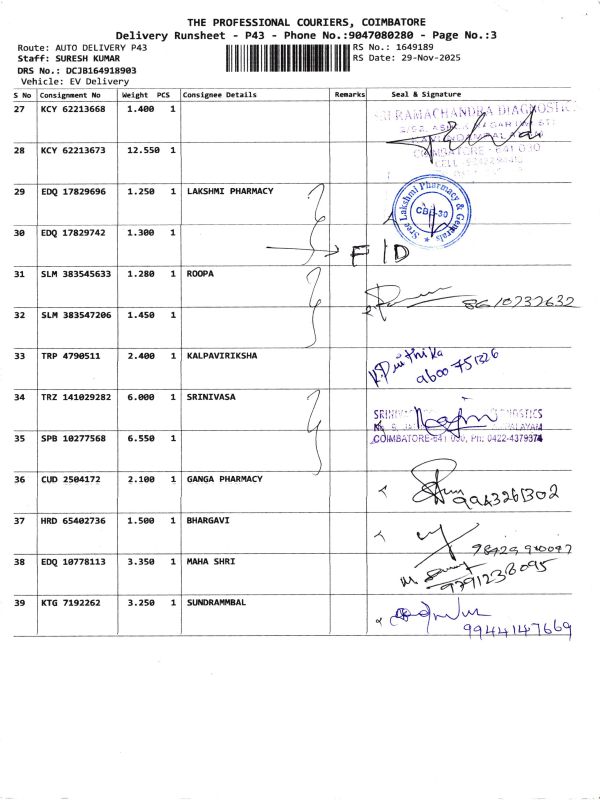 THE PROFESSIONAL COURIERS, COIMBATORE
Delivery Runsheet - P43 - Phone No.:9047080280 - Page No.:3
Route: AUTO DELIVERY P43 RS No.: 1649189
Staff: SURESH KUMAR RS Date: 29-Nov-2025
DRS No.: DCJB164918903
Vehicle: EV Delivery
S No Consignment No Weight PCS Consignee Details Remarks Seal & Signature
27 KCY 62213668 1.400 1
SRI RAMACHANDRA DIAGNOSTIC
COIMBATORE - 641 030
28 KCY 62213673 12.550 1
29 EDQ 17829696 1.250 1 LAKSHMI PHARMACY
Sree Lakshmi Pharmacy & Generals
CBE-30
30 EDQ 17829742 1.300 1
F/D
31 SLM 383545633 1.280 1 ROOPA
8610737632
32 SLM 383547206 1.450 1
33 TRP 4790511 2.400 1 KALPAVIRIKSHA
9600 751226
34 TRZ 141029282 6.000 1 SRINIVASA
COIMBATORE-641 030, Ph: 0422-4379374
35 SPB 10277568 6.550 1
36 CUD 2504172 2.100 1 GANGA PHARMACY
9943261302
37 HRD 65402736 1.500 1 BHARGAVI
38 EDQ 10778113 3.350 1 MAHA SHRI
9791238095
39 KTG 7192262 3.250 1 SUNDRAMMBAL
9944147669